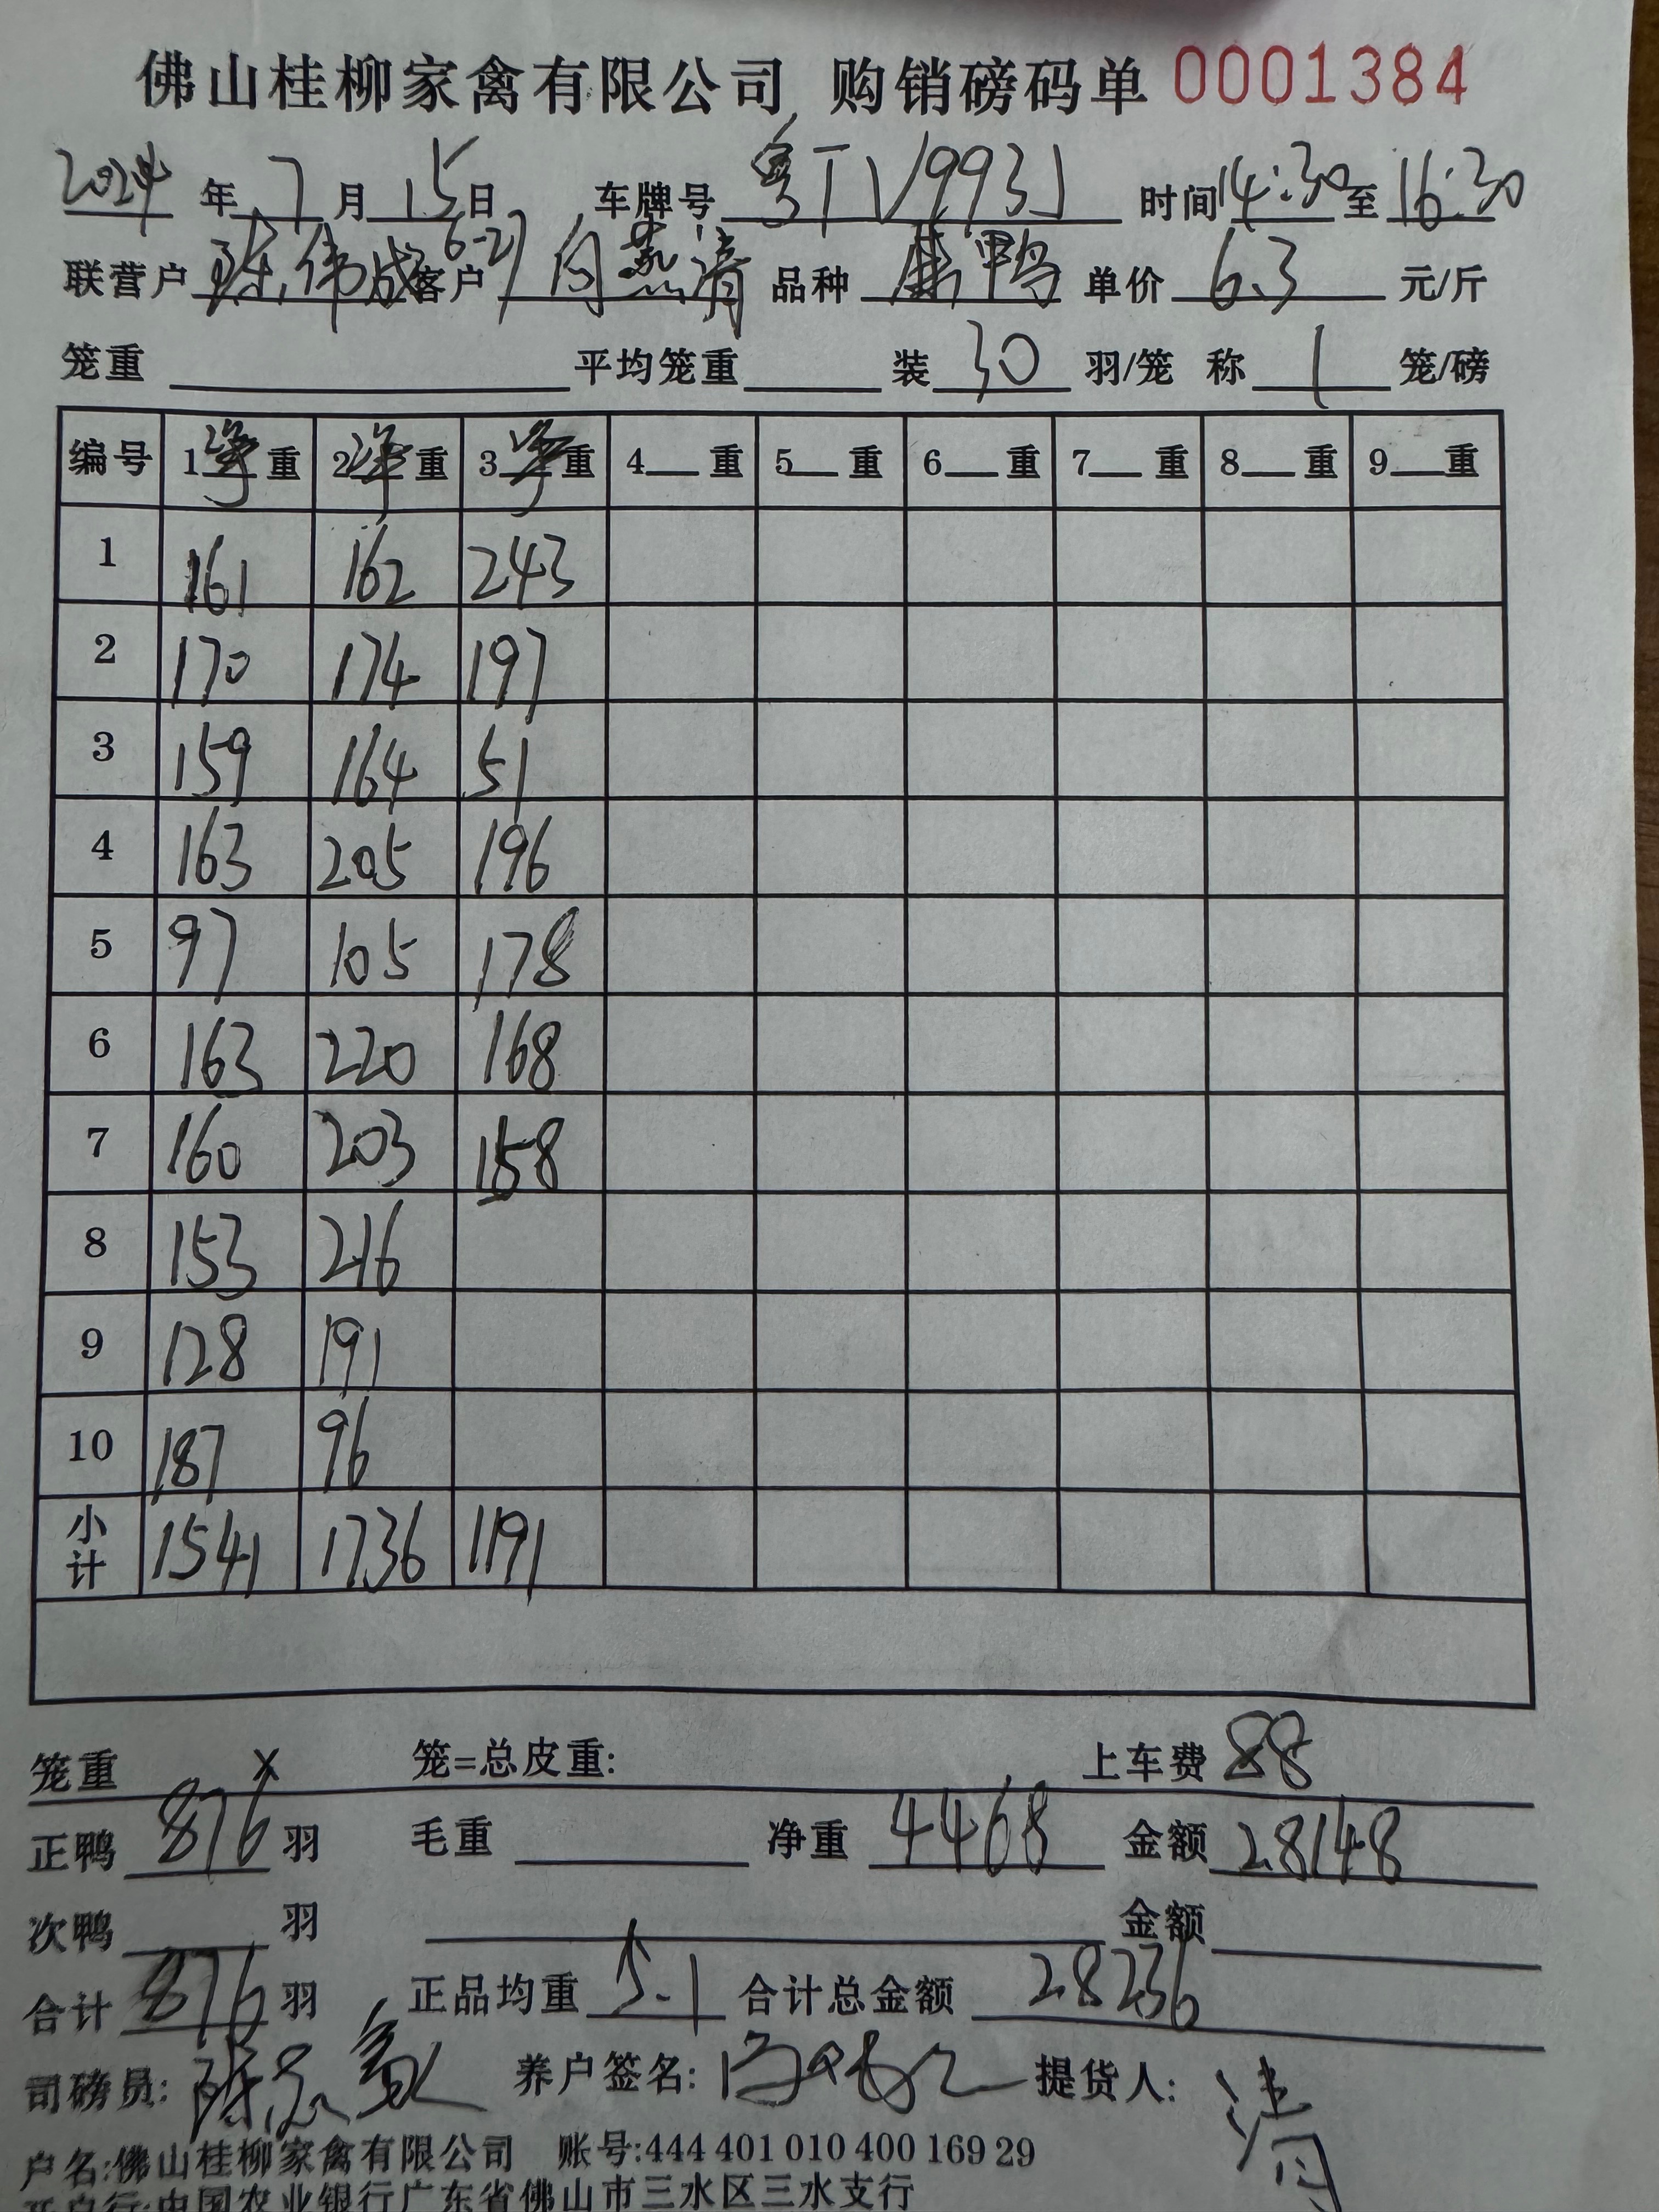 佛山桂柳家禽有限公司 购销磅码单 0001384
2024 年 7 月 15 日 车牌号 粤TV993J 时间 14:30 至 16:30
联营户 陈伟成 6-27 客户 向燕清 品种 单价 6.3 元/斤
笼重 平均笼重 装 30 羽/笼 称 1 笼/磅
编号 1净重 2净重 3净重 4 重 5 重 6 重 7 重 8 重 9 重
1 161 162 243
2 170 174 197
3 159 164 51
4 163 205 196
5 97 105 178
6 163 220 168
7 160 203 158
8 153 216
9 128 191
10 187 96
小计 1541 1736 1191
笼重 × 笼=总皮重: 上车费 88
正鸭 876 羽 毛重 净重 4468 金额 28148
次鸭 羽 金额
合计 876 羽 正品均重 5.1 合计总金额 28236
司磅员: 养户签名: 提货人: 清
户名:佛山桂柳家禽有限公司 账号:444 401 010 400 169 29
开户行:中国农业银行广东省佛山市三水区三水支行